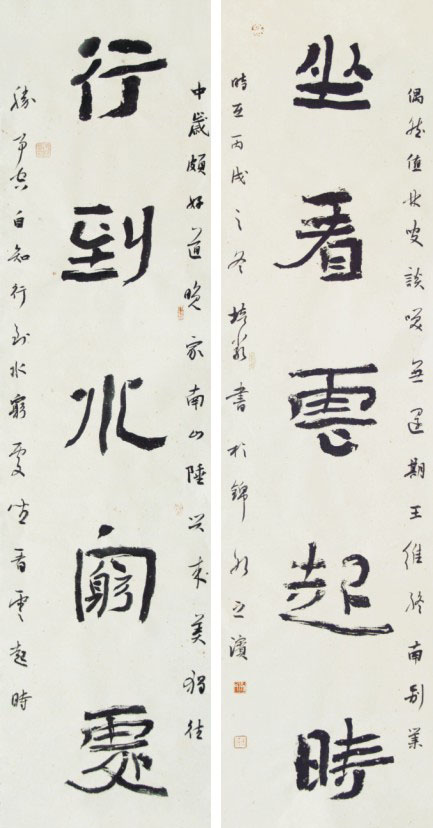 行到水窮處
中歲頗好道晚家南山陲興來美獨往
勝事空自知行到水窮處坐看雲起時
坐看雲起時
偶然值林叟談笑無還期王維終南別業
時在丙戌之冬培書於錦水之濱